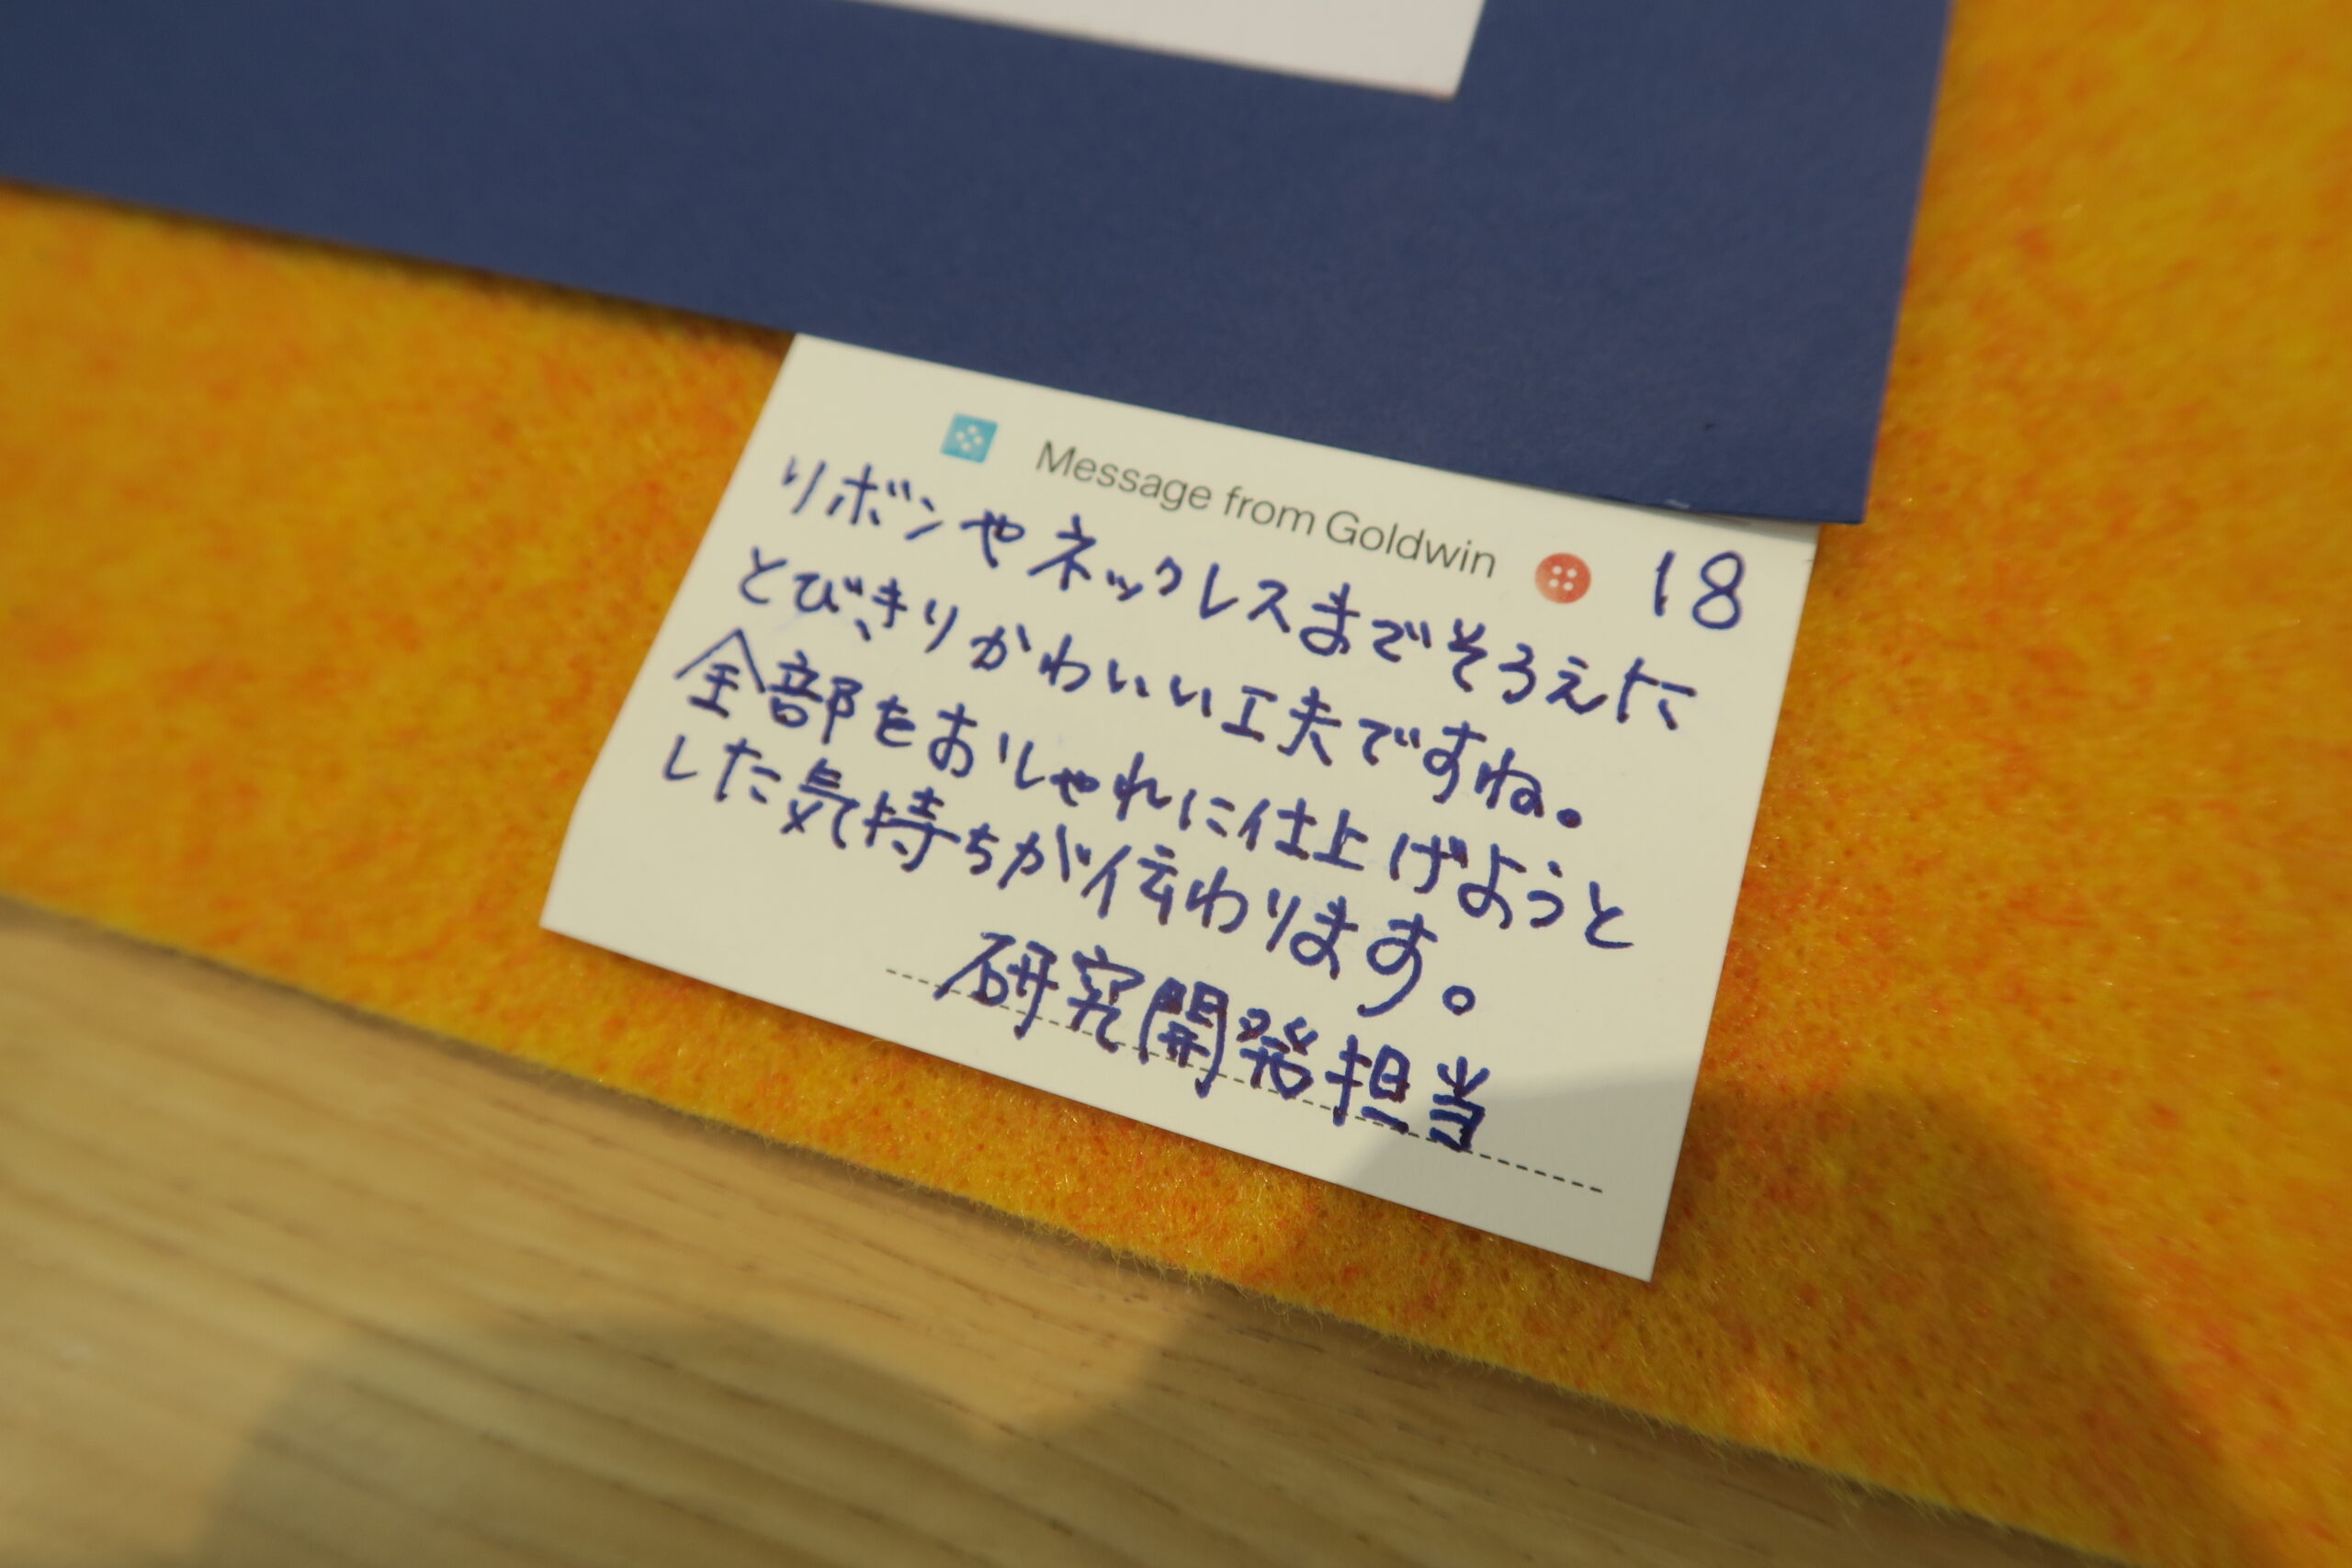 Message from Goldwin 18
リボンやネックレスまでそろえた
とびきりかわいい工夫ですね。
全部をおしゃれに仕上げようと
した気持ちが伝わります。
研究開発担当